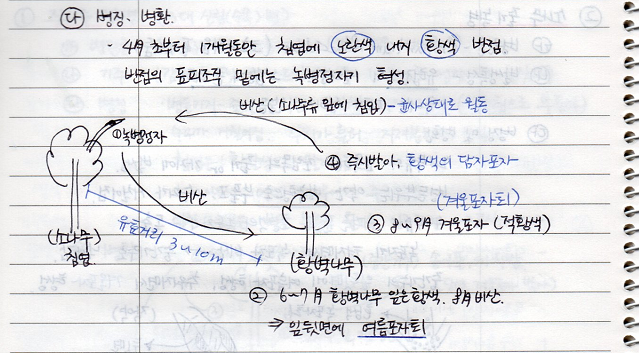 ㉰ 병징, 병환.
· 4月 초부터 1개월동안 침엽에 노란색 내지 황색 반점
반점의 표피조직 밑에는 녹병정자기 형성.
비산 (소나무류 잎에 침입) - 균사상태로 월동
①녹병정자
④ 즉시발아, 황색의 담자포자
비산
(겨울포자퇴)
③ 8~9月 겨울포자 (적황색)
유효거리 3~10m
(소나무)
침엽
(황벽나무)
② 6~7月 황벽나무 잎은 황색. 8月 비산.
⇒ 잎 뒷면에 여름포자퇴